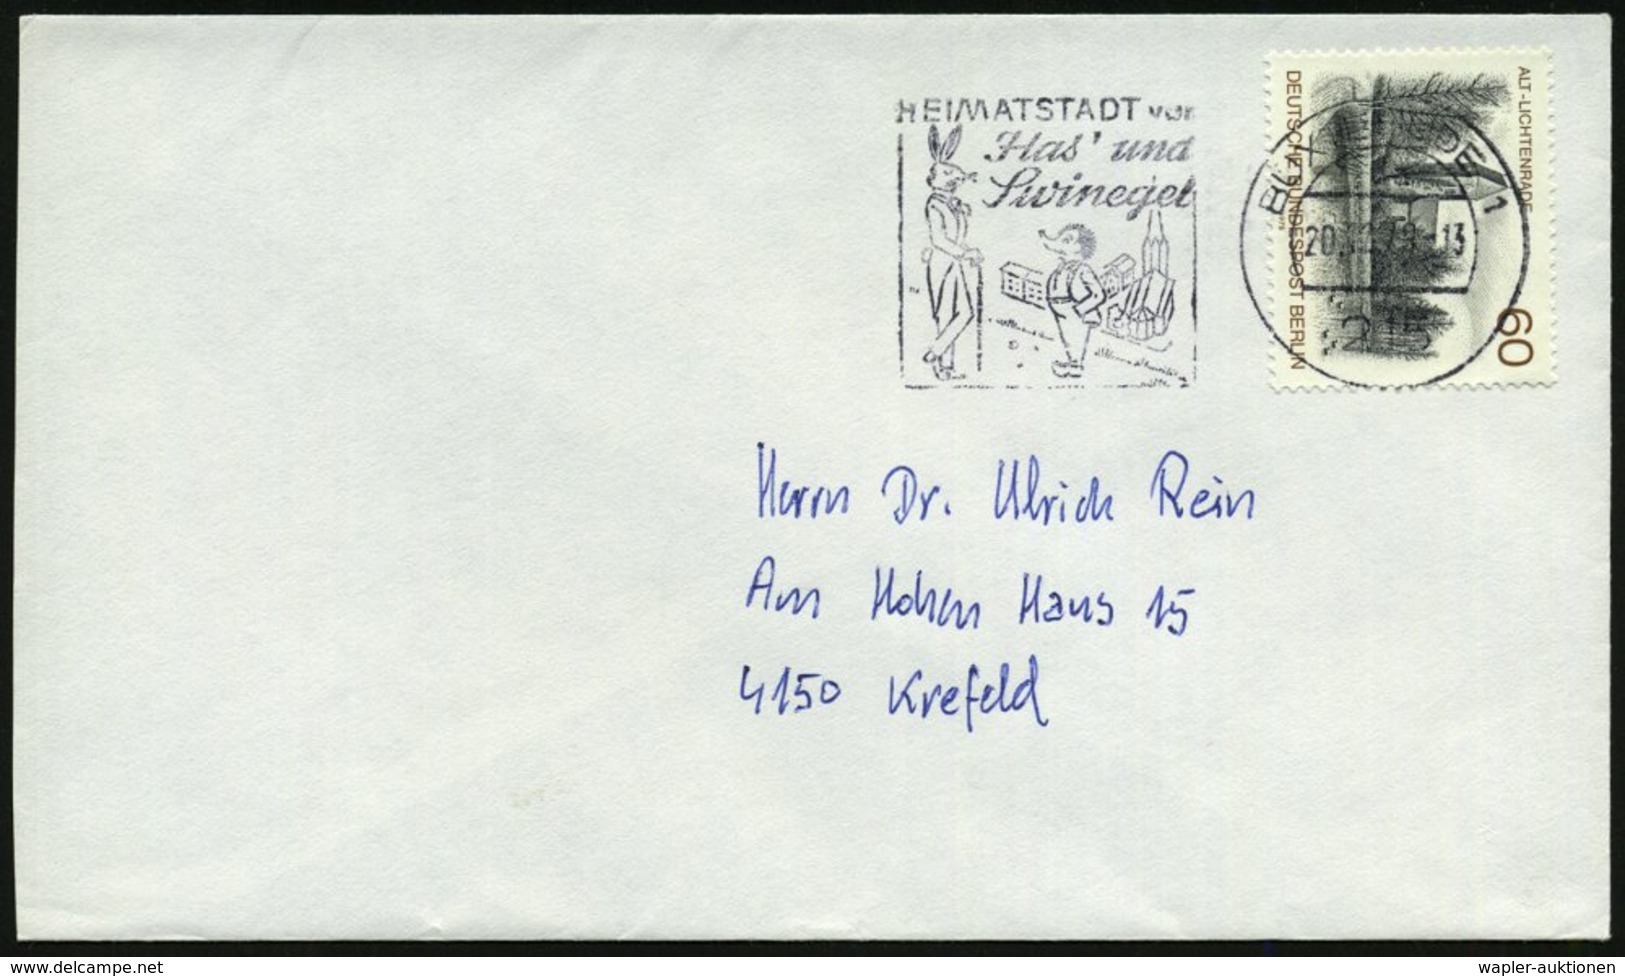 HEIMATSTADT von
Has' und
Swinegel
ALT-LICHTENRADE
DEUTSCHE BUNDESPOST BERLIN
60
1
-13
Herrn Dr. Ulrich Rein
Am Hohen Haus 15
4150 Krefeld
www.delcampe.net
wapler-auktionen